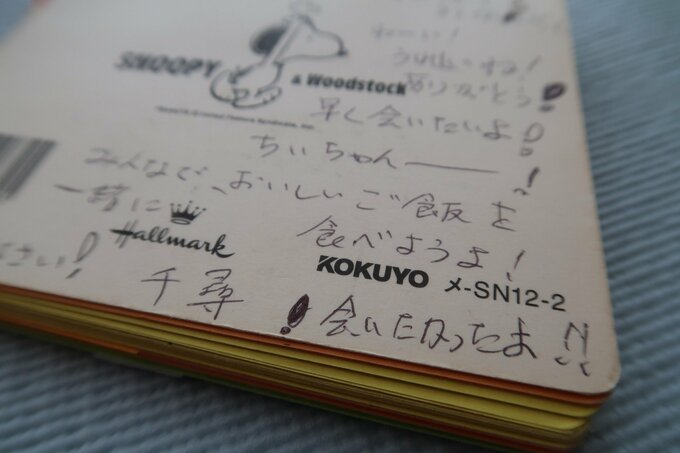 ねーい!
SNOOPY
& Woodstock
ありがとう!
早く会いたいよ!
ちぃちゃん――!
みんなで、おいしいご飯を
一緒に
食べようよ!
Hallmark
KOKUYO メ-SN12-2
さい!
千尋
! 会いたかったよ!!